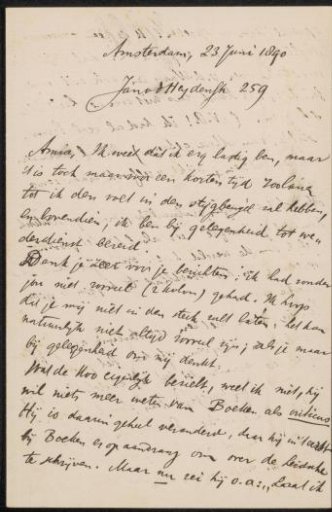 Amsterdam, 23 Juni 1890
Jan v d Heydenstr 259
Amice, Ik weet dat ik erg lastig ben, maar
't is toch maar voor een korten tyd zoolang
tot ik den voet in den stygbeugel zal hebben,
en bovendien, ik ben by gelegenheid tot we-
derdienst bereid
Dank je zeer voor je berichten: ik had zonder
jou niet zooveel (2 kolom) gehad. Ik hoop
dat je my niet in den steek zult laten: het kan
natuurlyk niet altyd zooveel zyn; als je maar
by gelegenheid om my denkt.
Wat de Koo eigenlyk bezielt, weet ik niet, hy
wil niets meer weten van Boeken als criticus
Hy is daarin geheel veranderd, daar hy in 't
by Boeken er op aandrang om over de
te schryven. Maar nu zei hy o.a.: "Laat ik